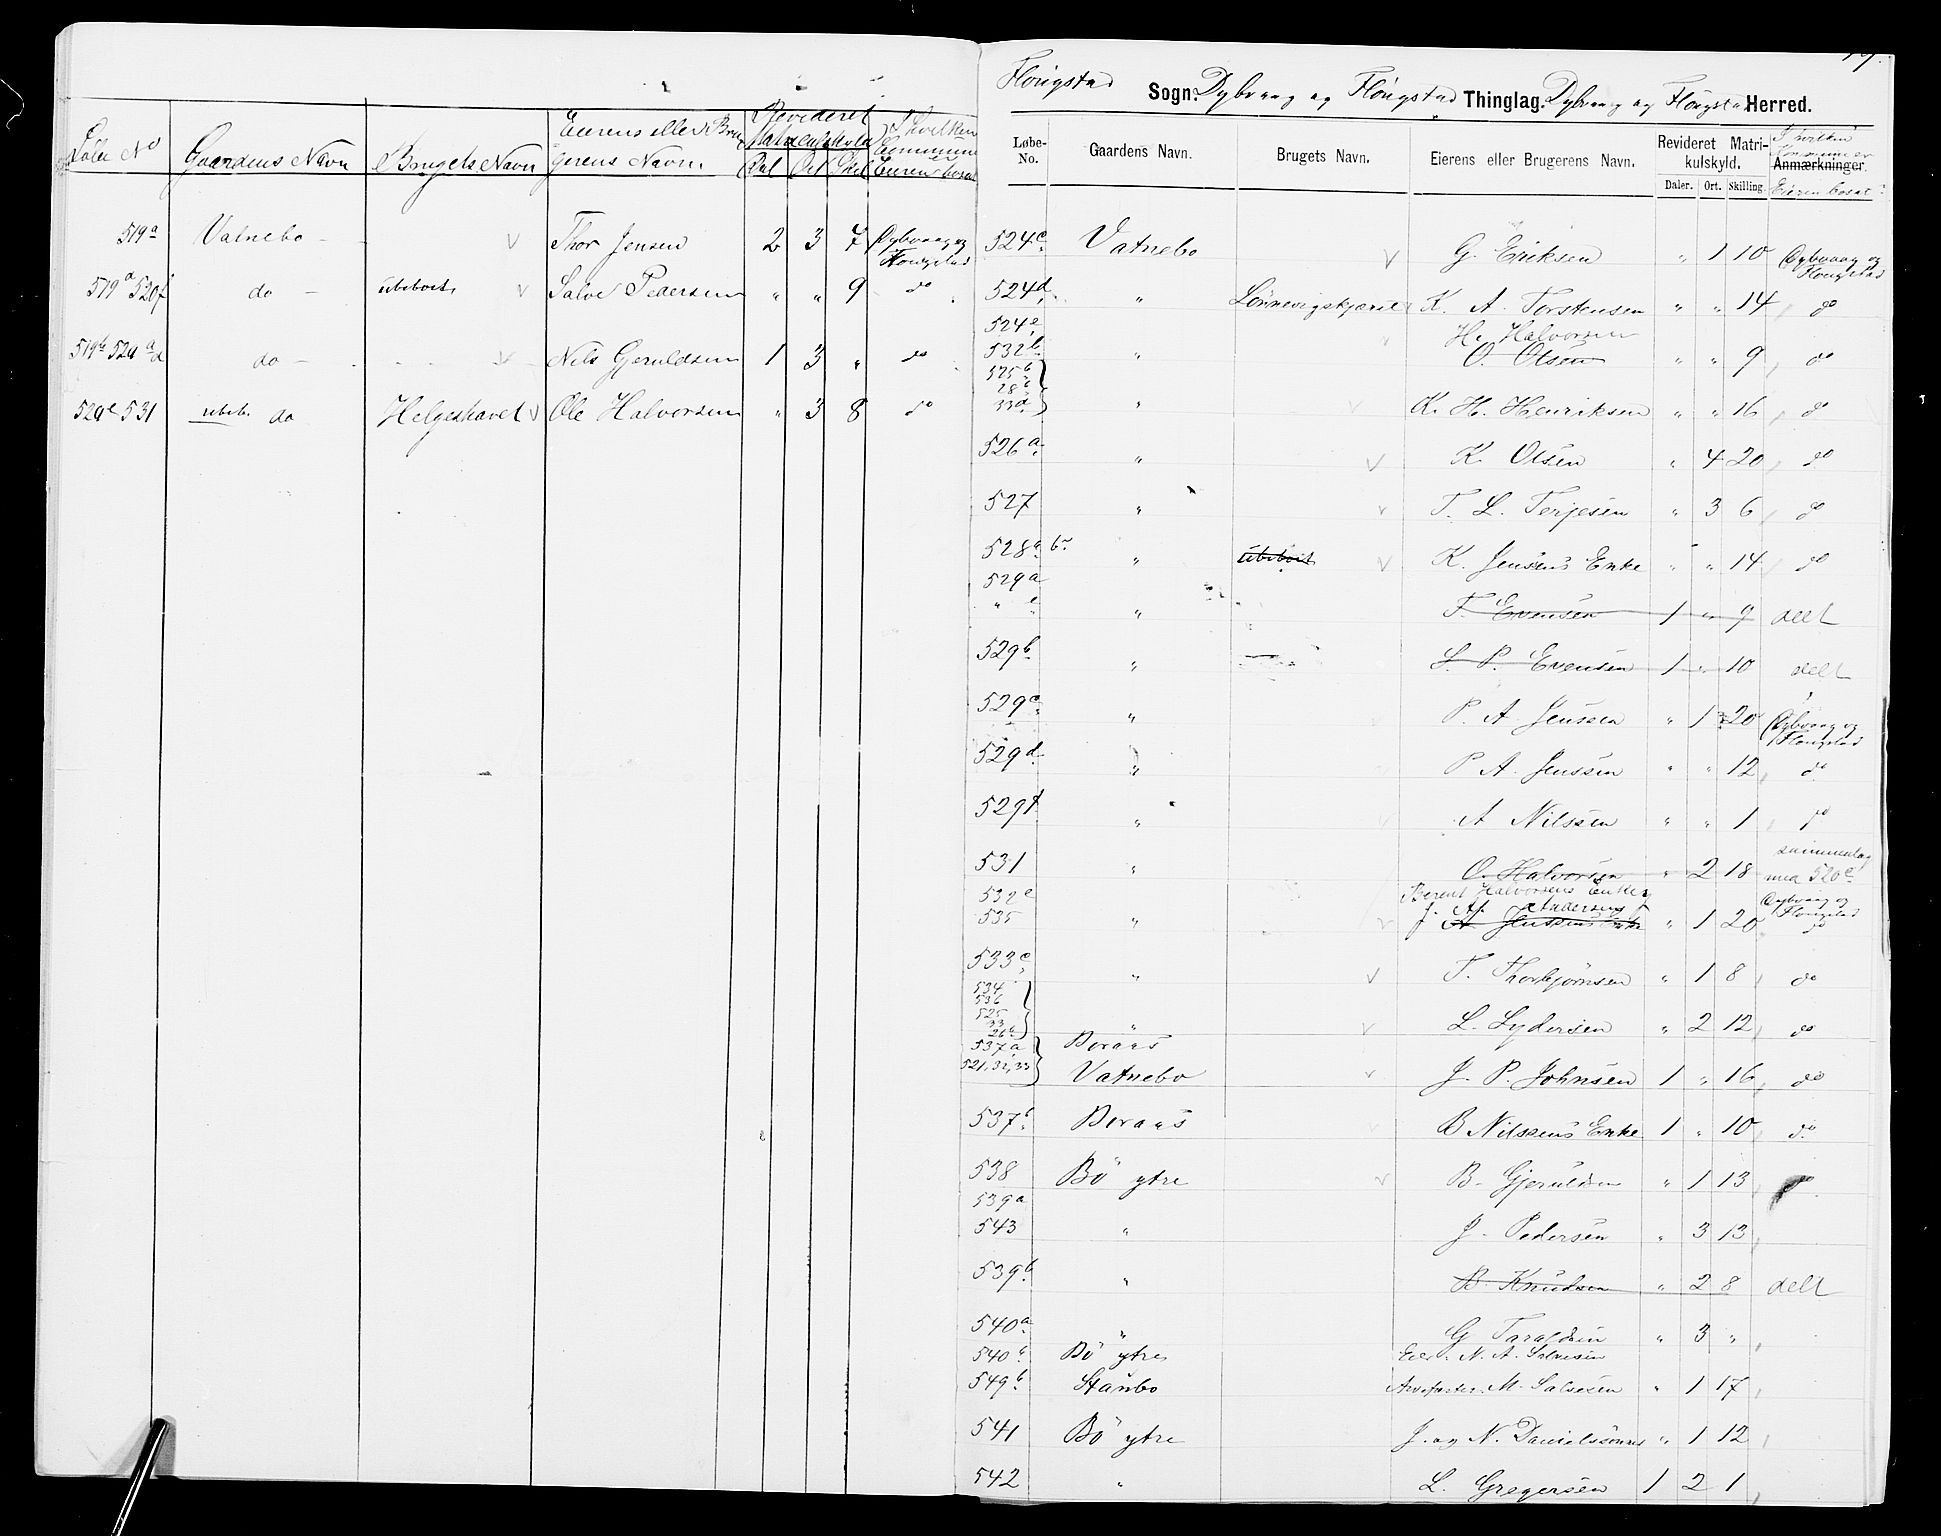 Løbe No Gaardens Navn Brugets Navn Eierens eller Brugerens Navn. Revideret Matrikulskyld Dal Ort Skil I hvilken Kommune Eieren er bosat
519a Vatnebo Thor Jensen 2 3 7 Dybvaag og Flougstad
519a 520f do ubeboet Salve Pedersen " " 9 do
519b 529a d do Nils Gjeruldsen 1 3 " do
529e 531 ubeb. do Helgeshavet Ole Halvorsen " 3 8 do
Flougstad Sogn. Dybvaag og Flougstad Thinglag. Dybvaag og Flougstad Herred.
Løbe-No. Gaardens Navn. Brugets Navn. Eierens eller Brugerens Navn. Revideret Matrikulskyld. Daler. Ort. Skilling. Anmærkninger. I hvilken Kommune er Eieren bosat?
524c Vatnebo G. Eriksen " 1 10 Dybvaag og Flougstad
524d " Lønnevigskjæret K. A. Torstensen " " 14 do
524e H. Halvorsen
532b " O. Olsen " " 9 do
525b 28b 33d " K. H. Henriksen " " 16 do
526a " K. Olsen " 4 20 do
527 " T. L. Terjesen " 3 6 do
528a b " ubeboet K. Jensens Enke " " 14 do
529a
" e " T. Evensen 1 " 9 delt
529b " L. P. Evensen 1 " 10 delt
529c " P. A. Jenssen " 1 20 Dybvaag og Flougstad
529d " P A. Jenssen " " 12 do
529f " A Nilssen " " 1 do
531 " O. Halvorsen " 2 18 sammenlag med 520e
532e Berent Halvorsens Enke og
535 " J. A. Andersens A. Jenssens Enke " 1 20 Dybvaag og Flougstad do
533c " T. Thorbjørnsen " 1 8 do
534 536 525 33 26b " L. Lydersen " 2 12 do
537a Boraas
521,32,33 Vatnebo J. P. Johnsen 1 " 16 do
537b Boraas B Nilssens Enke 1 " 10 do
538 Bö ytre B. Gjeruldsen " 1 13 do
539a
543 " J. Pedersen " 3 13
539b " B. Knudsen " 2 8 delt
540a " G Taraldsen " 3 "
540b Bö ytre Eier: N. A. Salvesen
549b Stanbo M. Salvesen " 1 17
541 Bö ytre J. og N. Danielssønner " 1 12
542 " L. Gregersen 1 2 1